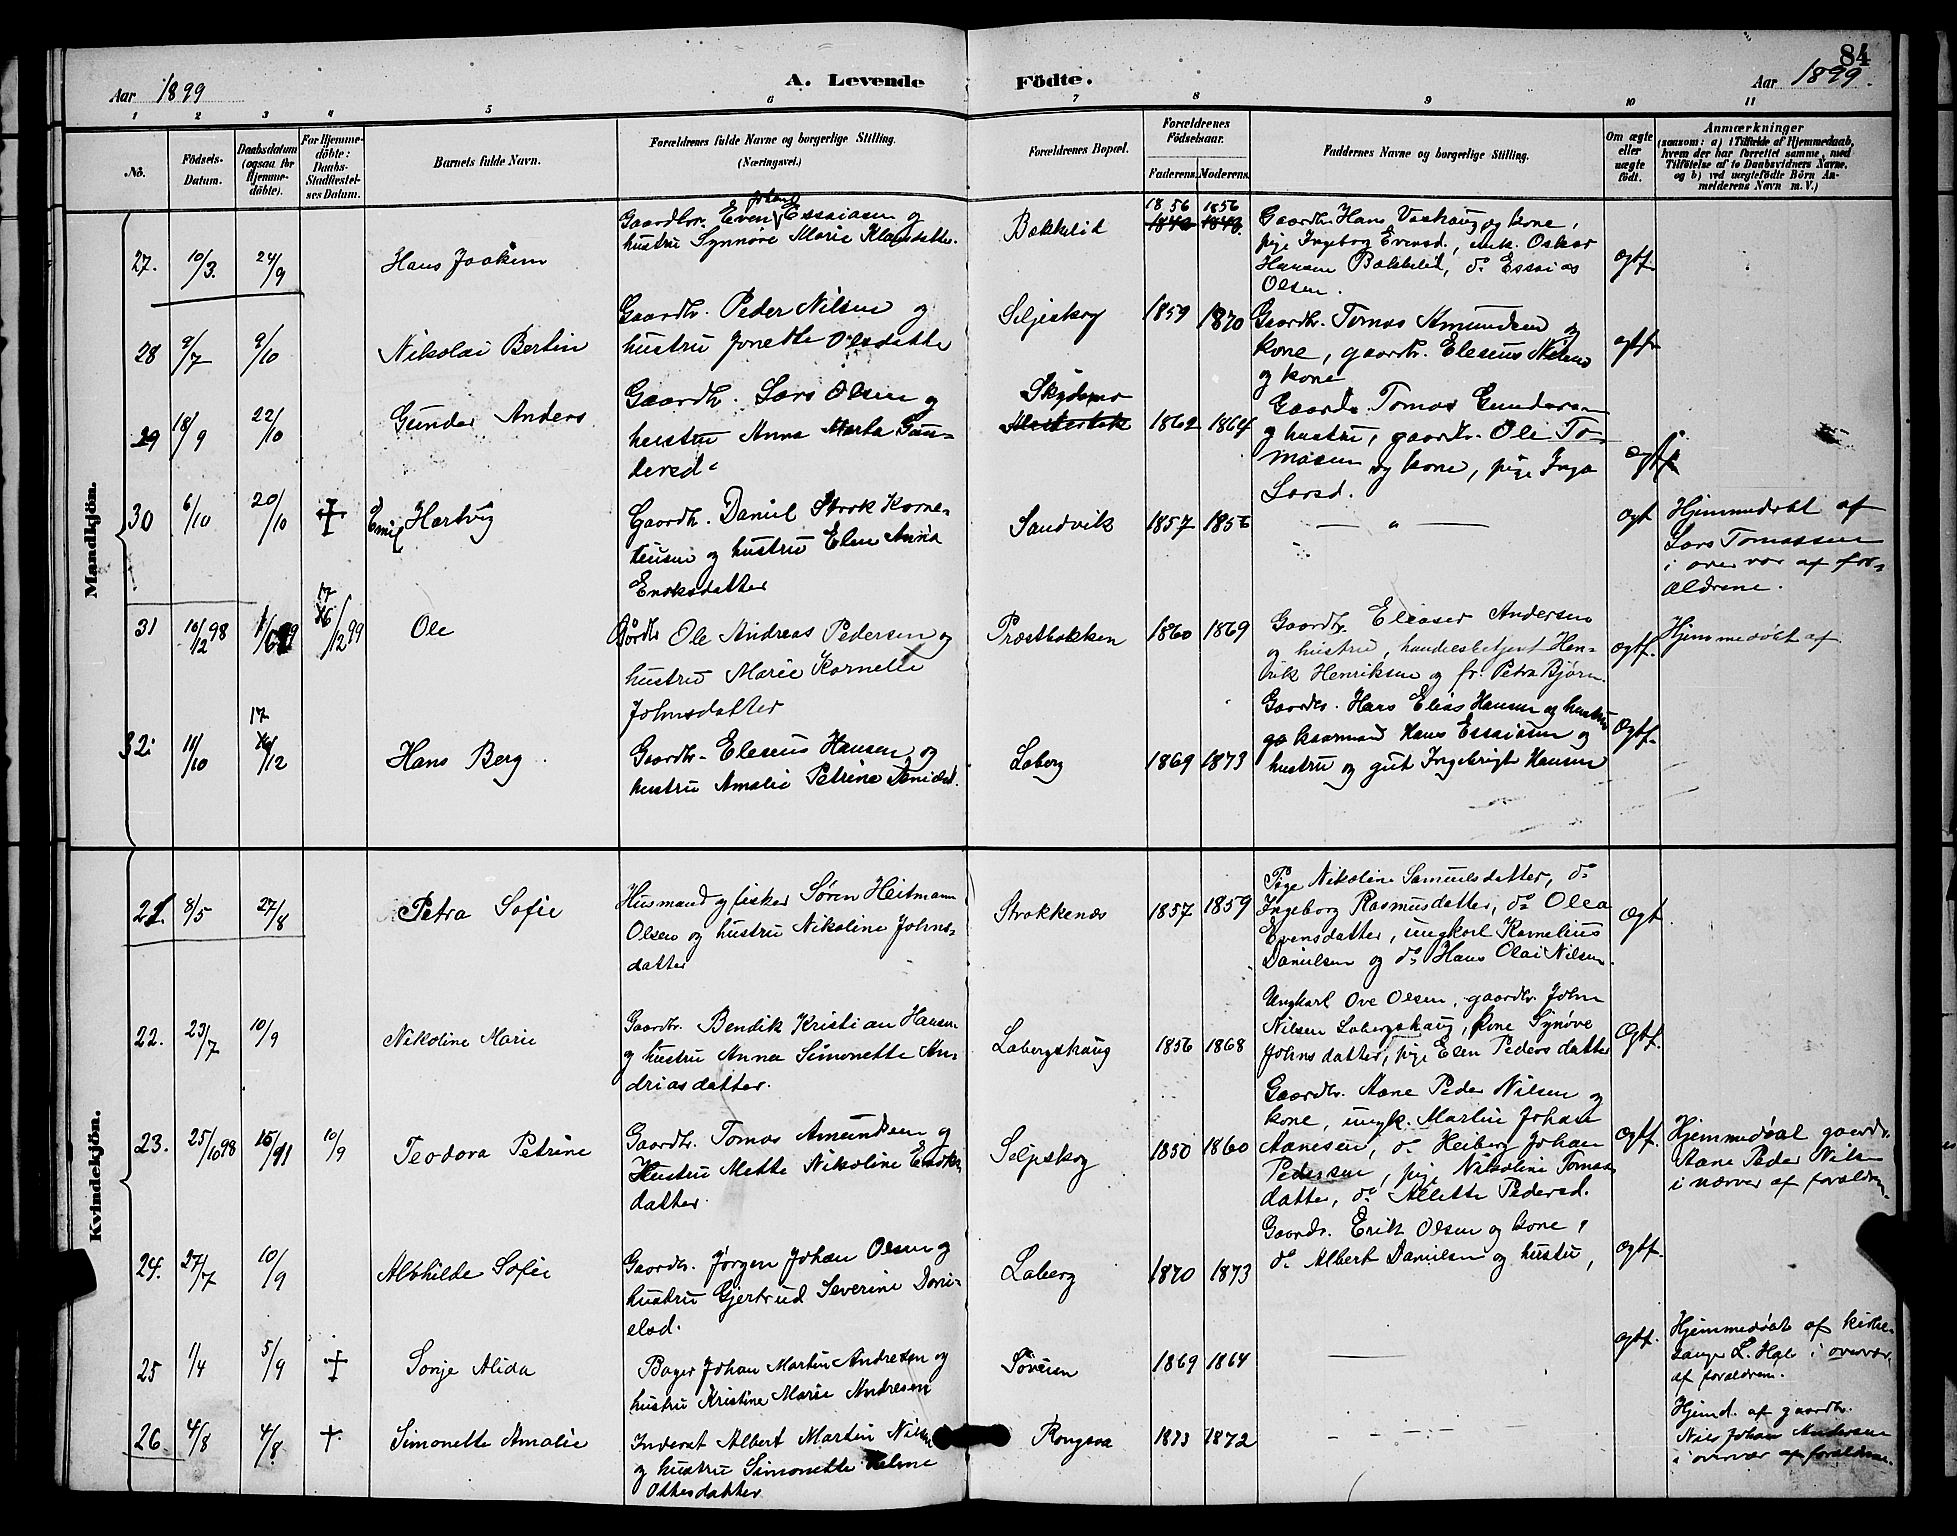 84
Aar 1899
A. Levende Födte.
Aar 1899.
1 2 3 4 5 6 7 8 9 10 11
No.
Födsels-Datum.
Daabsdatum (ogsaa for Hjemme-döbte).
For Hjemme-döbte: Daabs-Stadfæstel-ses Datum.
Barnets fulde Navn.
Forældrenes fulde Navne og borgerlige Stilling.
(Næringsvei.)
Forældrenes Bopæl.
Forældrenes Födselsaar.
Faderens. Moderens.
Faddernes Navne og borgerlige Stilling.
Om ægte eller uægte födt.
Anmærkninger
(saasom: a) i Tilfælde af Hjemmedaab,
hvem der har forrettet samme, med
Tilföielse af to Daabsvidners Navne,
og b) ved uægtefödte Börn An-
melderens Navn m. V.)
Mandkjön.
27. 10/3. 24/9 Hans Joakim
Gaardbr. Even Johan Essaiasen og
hustru Synnøve Marie Klausdatter.
Bakkelid
1856 1856
1848 1848.
Gaardb. Hans Vaskaug og kone,
pige Ingeborg Evensd., unk. Oskar
Hansen Bakkelid, do Essaias
Olsen.
ægtf.
28 9/7 9/10 Nikolai Bertin
Gaardb. Peder Nilsen og
hustru Jonette Olsdatter
Seljeskog 1859 1870
Gaardb. Tomas Amundsen og
kone, gaardb. Eleseus Nilsen
og kone
ægtf.
29 18/9 22/10 Gunder Anders
Gaardb. Lars Olsen og
hustru Anna Marta Gun-
dersd.
1862 1864
Gaardb. Tomas Gundersen
og hustru, gaardb. Ole To-
masen og kone, pige Inga
Larsd.
ægtf.
30 6/10 20/10 + Emil Hartvig
Gaardb. Daniel Strok Korne-
liusen og hustru Elen Anna
Enoksdatter
Sandvik 1857 1856
— " —
ægt
Hjemmedøbt af
Lars Tomassen
i overvær af for-
ældrene.
31 10/12 98 1/6 99 17/12 99 Ole
Gårdb. Ole Andreas Pedersen og
hustru Marie Kornelie
Johnsdatter
Præstbakken 1860 1869
Gaardb. Eleaser Andersen
og hustru, handelsbetjent Hen-
rik Henriksen og fr. Petra Bjørn.
ægtf.
Hjemmedøbt af
32. 11/10 17/12 Hans Berg
Gaardb. Eleseus Hansen og
hustru Amalie Petrine Danielsd.
Laberg 1869 1873
Gaardb. Hans Elias Hansen og hustru
og kaarmand Hans Essaiasen og
hustru og gut Ingebrigt Hansen
ægtf.
Kvindekjön.
21. 8/5 27/8 Petra Sofie
Husmand og fisker Søren Heitmann
Olsen og hustru Nikoline Johns-
datter
Strokkenæs 1857 1859
Pige Nikoline Samuelsdatter, do
Ingeborg Rasmusdatter, do Olea
Evensdatter, ungkarl Kornelius
Danielsen og do Hans Olai Nilsen.
ægt
22. 23/7 10/9 Nikoline Marie
Gaardbr. Bendik Kristian Hansen
og hustru Anna Simonette An-
driasdatter.
Labergskaug 1856 1868
Ungkarl Ove Olsen, gaardbr. John
Nilsen Labergskaug, kone Synøve
Johnsdatter, pige Elen Pedersdatter
ægtf.
23. 25/10 98 15/11 10/9 Teodora Petrine
Gaardb. Tomas Amundsen og
Hustru Mette Nikoline Enoks-
datter.
Seljeskog 1850 1860
Gaardb. Aane Peder Nilsen og
kone, ungk. Martin Johan
Aanesen, do Heiberg Johan
Pedersen, pige Nikoline Tomas-
datter, do Alette Pedersd.
ægtf.
Hjemmedøbt gaardb.
Aane Peder Nilsen
i nærvær af forældren.
24. 27/7 10/9 Alvhilde Sofie
Gaardb. Jørgen Johan Olsen og
hustru Gjertrud Severine Dani-
elsd.
Laberg 1870 1873
Gaardb. Erik Olsen og kone,
do Albert Danielsen og hustru,
ægtf.
25 1/4 5/9 + Sonje Alida
Bager Johan Martin Andresen og
hustru Kristine Marie Andresen
Søveien 1869 1864
—
ægtf.
Hjemmedøbt af kirke-
sanger L. Hole i overvær
af forældrene.
26 4/8 4/8 + Simonette Amalie
Inderst Albert Martin Nilsen
og hustru Simonette Helme
Ottesdatter
1873 1872
— — — —
Hjemd. af gaardbr.
Nils Johan Andersen
i overvær af forældrene.